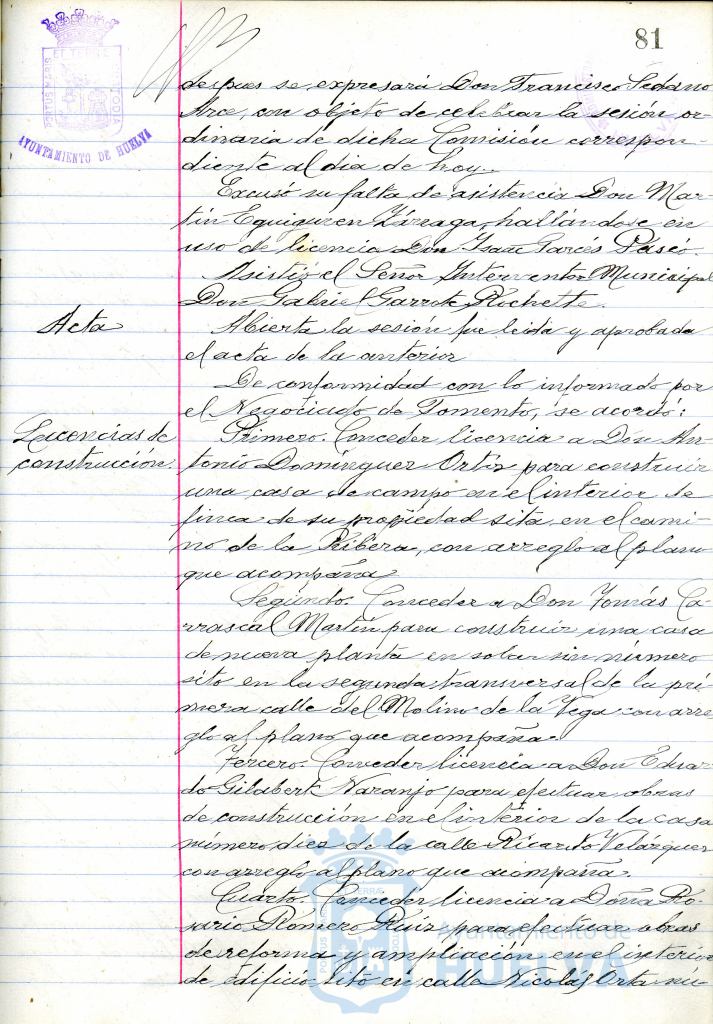 81
PORTUS MARIS ET TERRAE CUSTODIA
AYUNTAMIENTO DE HUELVA
despues se expresará Don Francisco Sedano
Arce, con objeto de celebrar la sesión or-
dinaria de dicha Comisión correspon-
diente al dia de hoy.
Excusó su falta de asistencia Don Mar-
tín Eguiguren Zárraga, hallándose en
uso de licencia Don Isaac Garcés Paseó.
Asistió el Señor Interventor Municipal
Don Gabriel Garrote Rochette.
Acta
Abierta la sesión fue leida y aprobada
el acta de la anterior
De conformidad con lo informado por
el Negociado de Fomento, se acordó:
Licencias de
construcción.
Primero. Conceder licencia a Don An-
tonio Domínguez Ortiz para construir
una casa de campo en el interior de
finca de su propiedad sita en el cami-
no de la Ribera, con arreglo al plano
que acompaña
Segundo. Conceder a Don Tomás Ca-
rrascal Martín para construir una casa
de nueva planta en solar sin número
sito en la segunda transversal de la pri-
mera calle del Molino de la Vega con arre-
glo al plano que acompaña.
Tercero. Conceder licencia a Don Eduar-
do Gilabert Naranjo para efectuar obras
de construcción en el interior de la casa
número diez de la calle Ricardo Velázquez
con arreglo al plano que acompaña.
Cuarto. Conceder licencia a Doña Ro-
sario Romero Ruiz para efectuar obras
de reforma y ampliación en el interior
de edificio sito en calle Nicolás Orta nú-
Ayuntamiento de
HUELVA